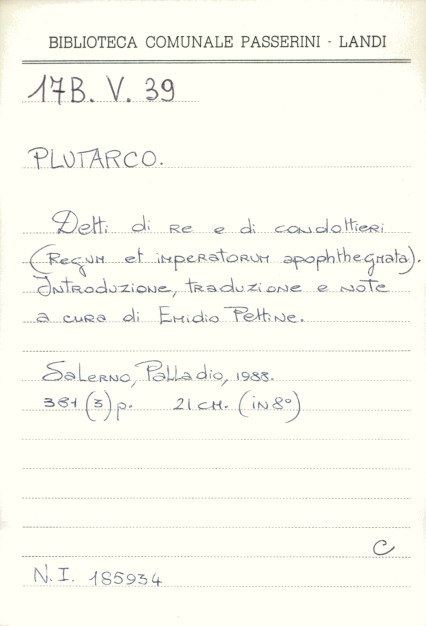 BIBLIOTECA COMUNALE PASSERINI - LANDI
17B. V. 39
PLUTARCO.
Detti di re e di condottieri
(Regum et imperatorum apophthegmata).
Introduzione, traduzione e note
a cura di Emidio Pettine.
Salerno, Palladio, 1988.
381 (3) p. 21 cm. (in 8°)
C
N. I. 185934